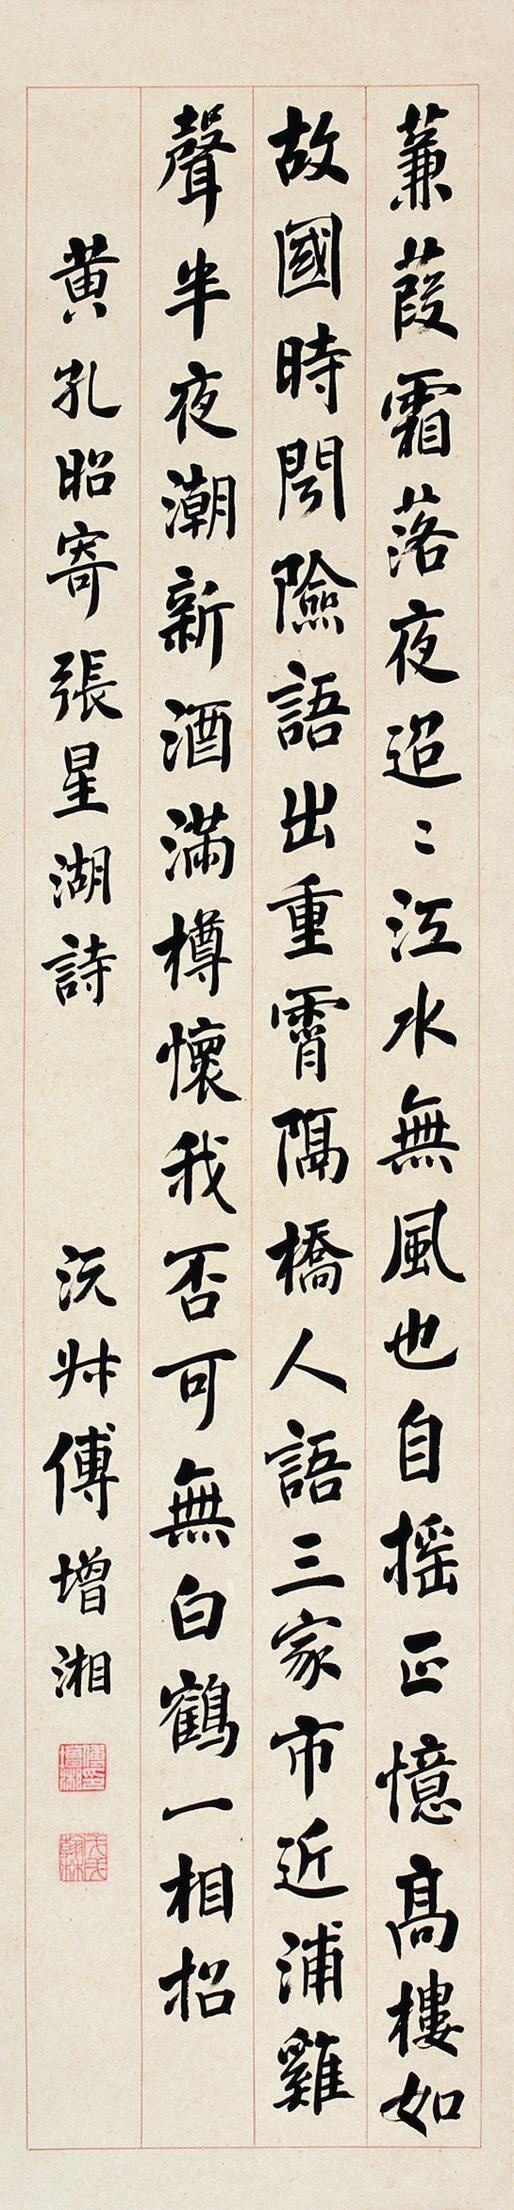 蒹葭霜落夜迢〻江水無風也自摇正憶高樓如
故國時聞險語出重霄隔橋人語三家市近浦雞
聲半夜潮新酒滿樽懷我否可無白鶴一相招
黄孔昭寄張星湖詩 沅叔傅增湘
傅印增湘
戊戌翰林